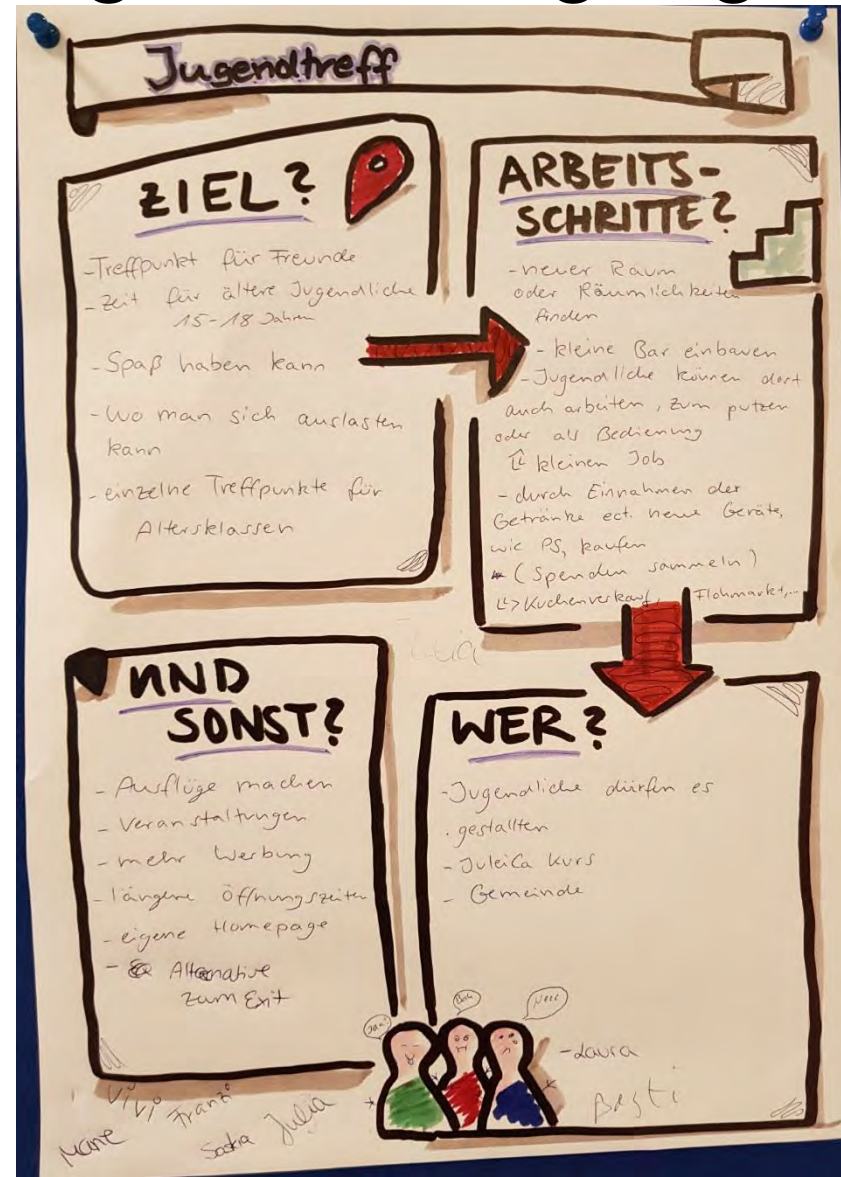 Jugendtreff
ZIEL?
- Treffpunkt für Freunde
- Zeit für ältere Jugendliche
15-18 Jahren
- Spaß haben kann
- Wo man sich auslasten
kann
- einzelne Treffpunkte für
Altersklassen
ARBEITS-
SCHRITTE?
- neuer Raum
oder Räumlichkeiten
finden
- kleine Bar einbauen
- Jugendliche können dort
auch arbeiten, zum putzen
oder als Bedienung
kleinen Job
- durch Einnahmen der
Getränke ect. neue Geräte,
wie PS, kaufen
* (Spenden sammeln)
↳> Kuchenverkauf, Flohmarkt,...
UND
SONST?
- Ausflüge machen
- Veranstaltungen
- mehr Werbung
- längere Öffnungszeiten
- eigene Homepage
- Alternative
zum Exit
WER?
- Jugendliche dürfen es
gestallten
- JuleiCa Kurs
- Gemeinde
- Laura
Basti
ViVi
Franzi
Marie
Saskia
Julia